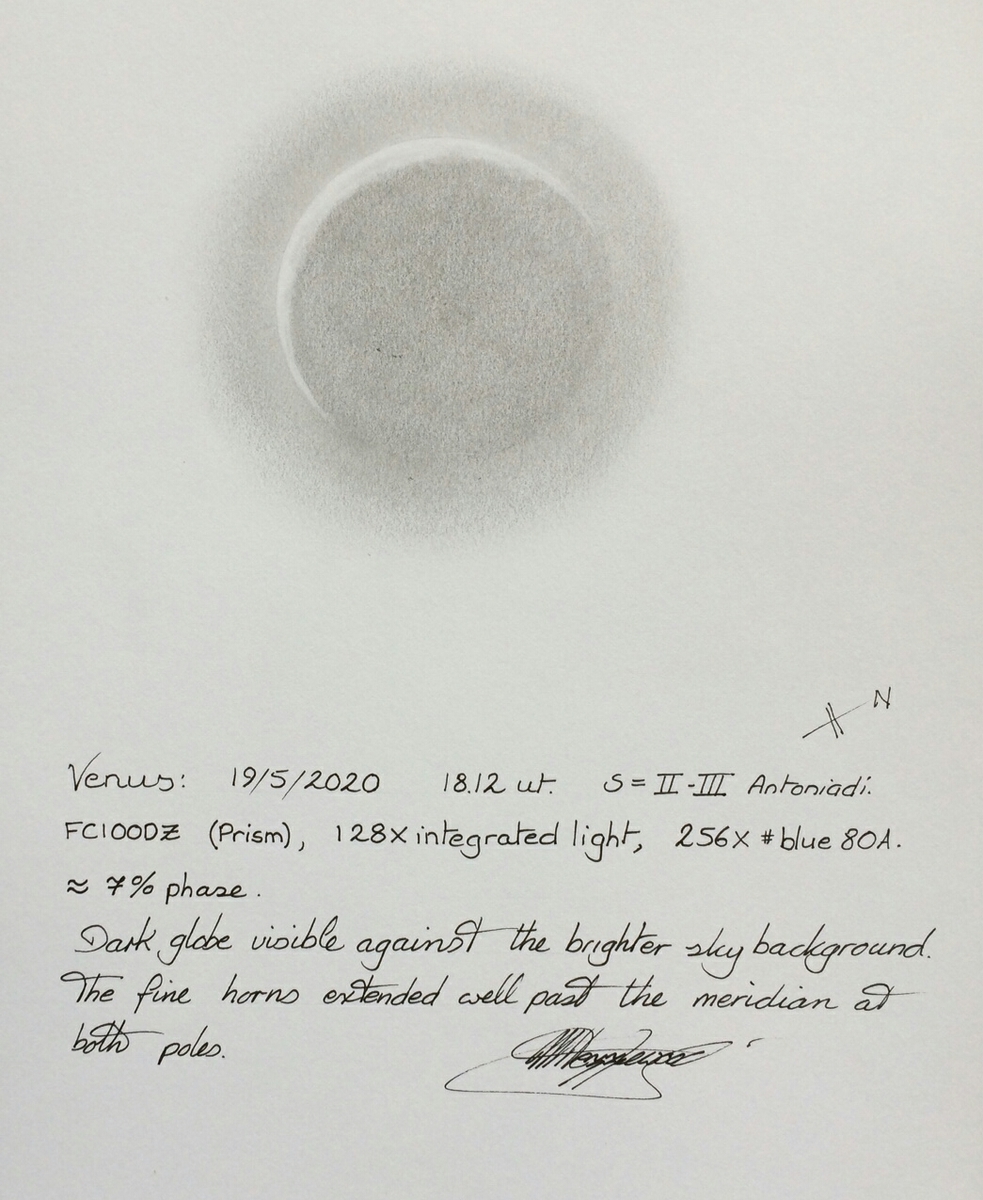 N
Venus: 19/5/2020 18.12 ut. S = II-III Antoniadi.
FC100DZ (Prism), 128X integrated light, 256X # blue 80A.
≈ 7% phase.
Dark globe visible against the brighter sky background.
The fine horns extended well past the meridian at
both poles.